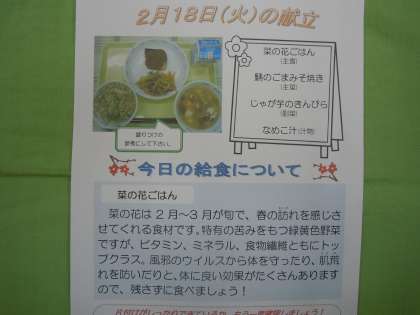 2月18日(火)の献立
菜の花ごはん
(主食)
鯖のごまみそ焼き
(主菜)
じゃが芋のきんぴら
(副菜)
なめこ汁(汁物)
盛りつけの
参考にして下さい。
今日の給食について
菜の花ごはん
菜の花は2月～3月が旬で、春の訪れを感じさ
せてくれる食材です。特有の苦みをもつ緑黄色野菜
ですが、ビタミン、ミネラル、食物繊維ともにトッ
プクラス。風邪のウイルスから体を守ったり、肌荒
れを防いだりと、体に良い効果がたくさんあります
ので、残さずに食べましょう！